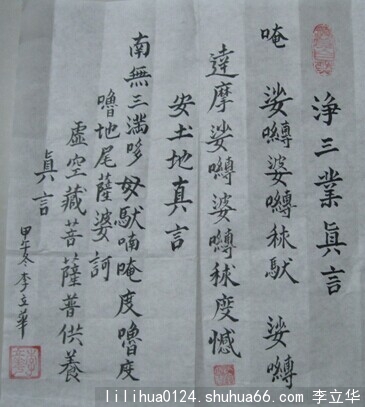 浄三業眞言
唵 娑嚩婆嚩秫馱 娑嚩
達摩娑嚩婆嚩秫度憾
安土地真言
南無三滿哆母馱喃唵度嚕度
嚕地尾薩婆訶
虛空藏菩薩普供養
眞言
甲午冬李立華
lilihua0124.shuhua66.com 李立华